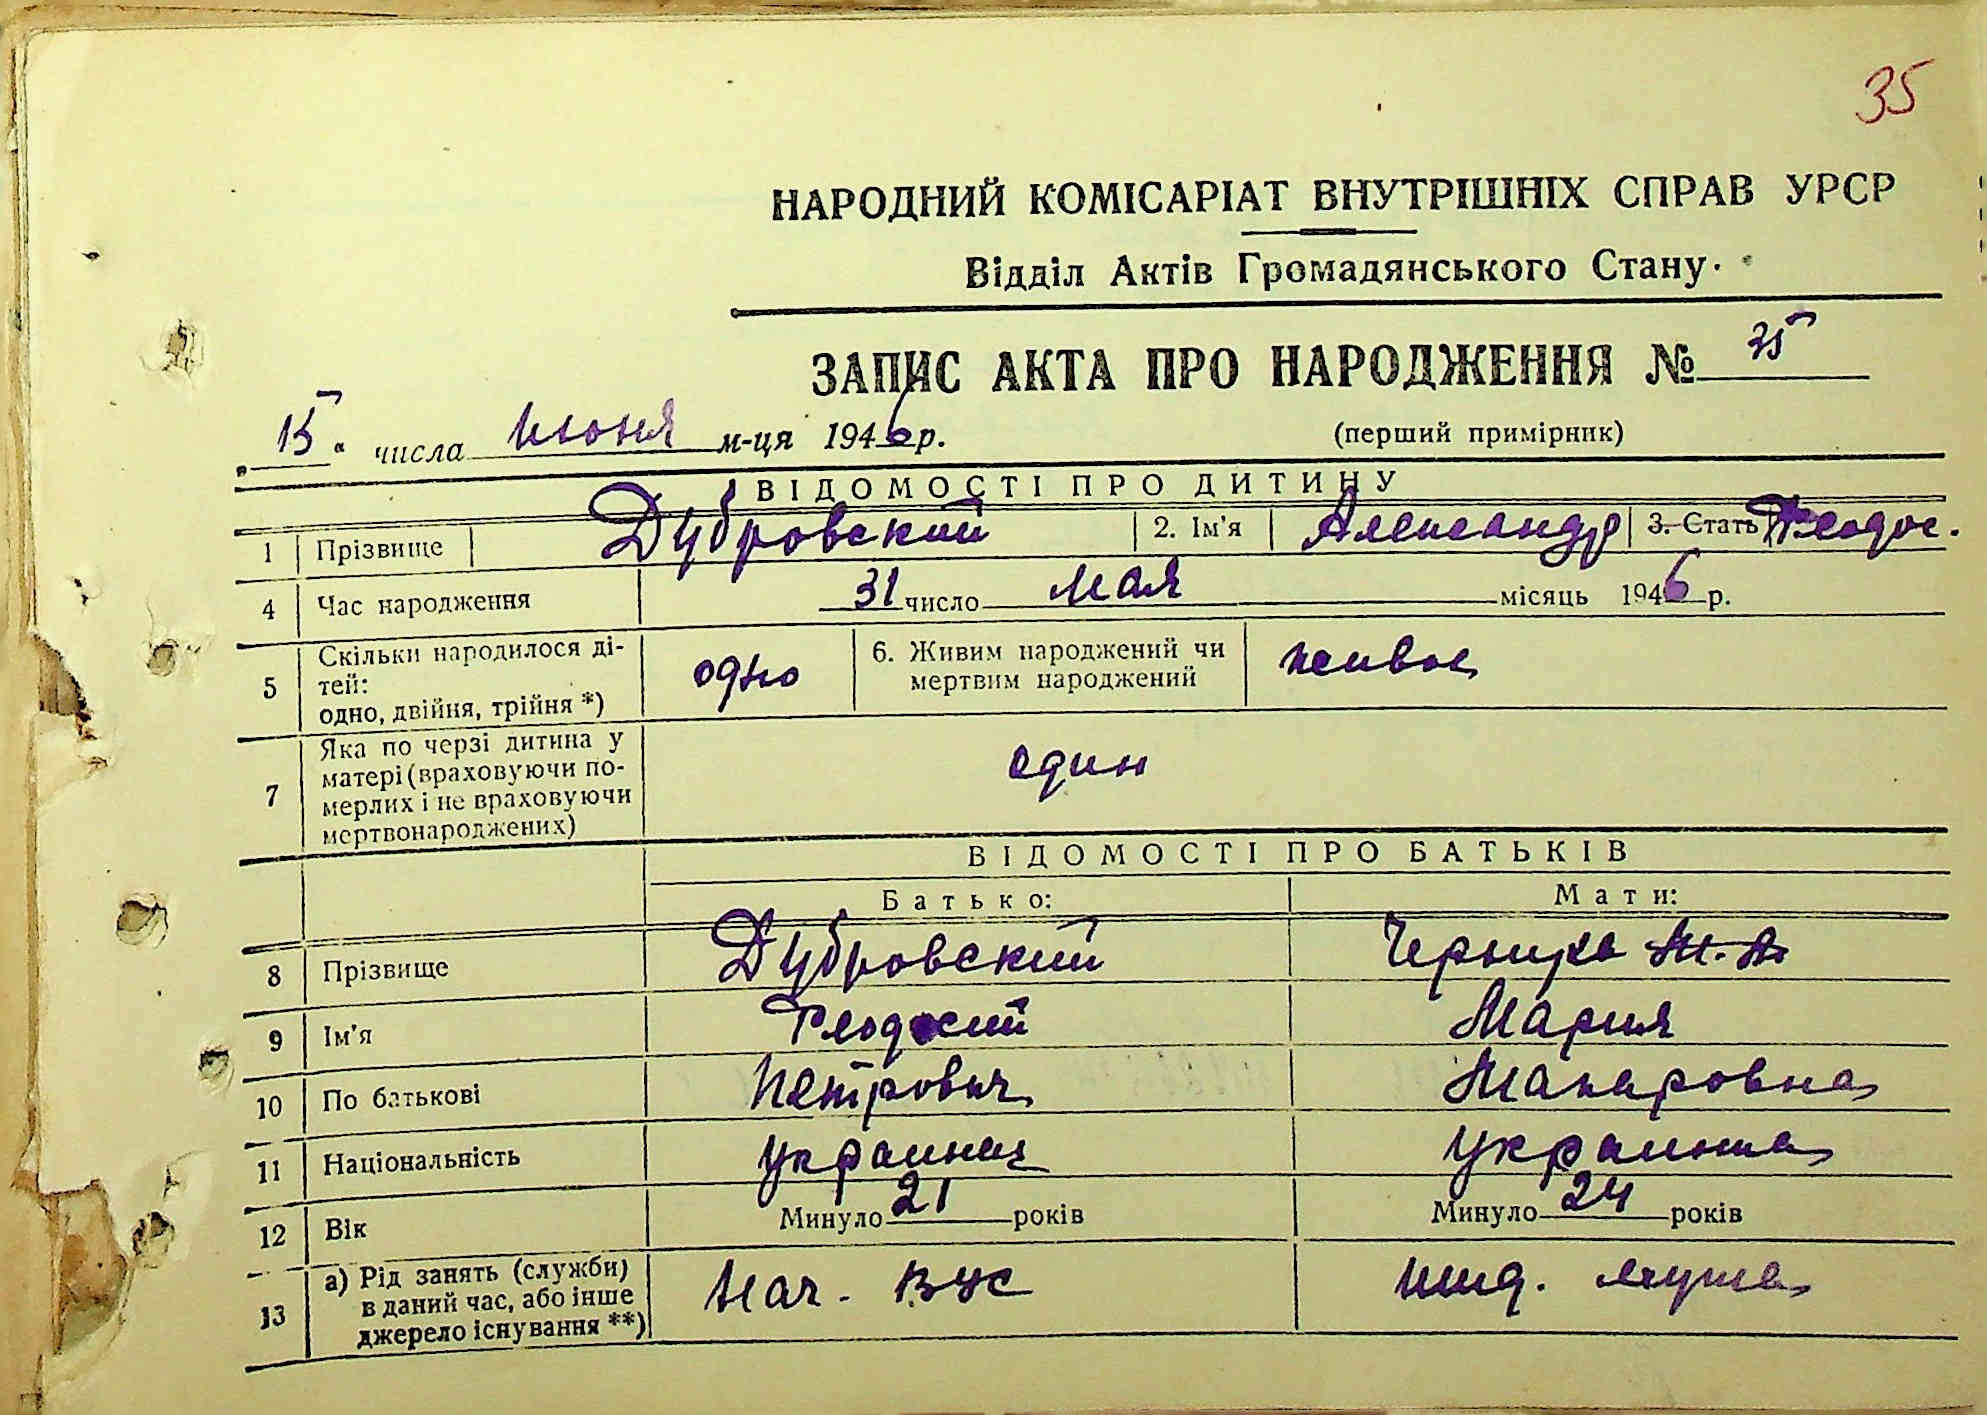 35
НАРОДНИЙ КОМІСАРІАТ ВНУТРІШНІХ СПРАВ УРСР
Відділ Актів Громадянського Стану
ЗАПИС АКТА ПРО НАРОДЖЕННЯ № 35
„15“ числа июня м-ця 1946 р. (перший примірник)
ВІДОМОСТІ ПРО ДИТИНУ
1 Прізвище Дубровский 2. Ім'я Александр 3. Стать Феодос.
4 Час народження 31 число мая місяць 1946 р.
5 Скільки народилося ді-
тей:
одно, двійня, трійня *) одно 6. Живим народжений чи
мертвим народжений живое
7 Яка по черзі дитина у
матері (враховуючи по-
мерлих і не враховуючи
мертвонароджених) один
ВІДОМОСТІ ПРО БАТЬКІВ
Батько: Мати:
8 Прізвище Дубровский М.
9 Ім'я Феодосий Мария
10 По батькові Петрович Макаровна
11 Національність украинец украинка
12 Вік Минуло 21 років Минуло 24 років
13 а) Рід занять (служби)
в даний час, або інше
джерело існування **) Нач. ВУС ижд. мужа